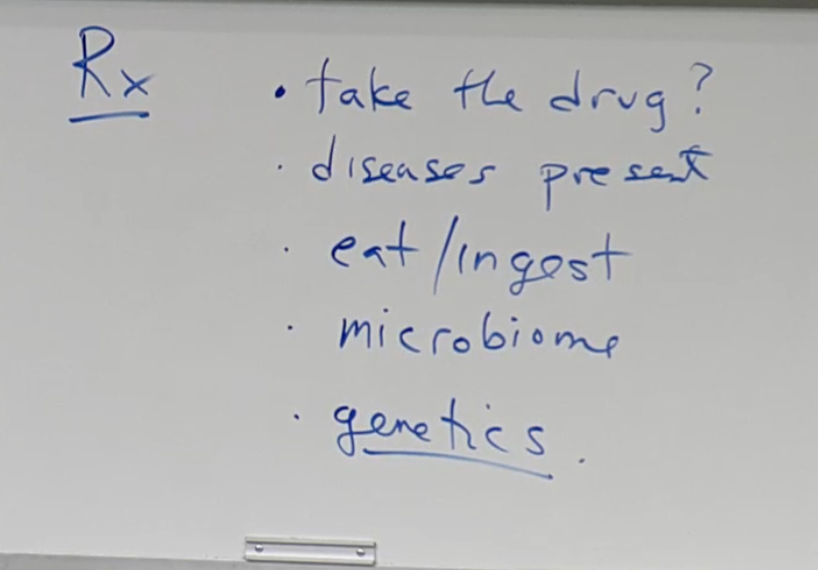 Rx
• take the drug?
· diseases present
· eat/ingest
· microbiome
· genetics.